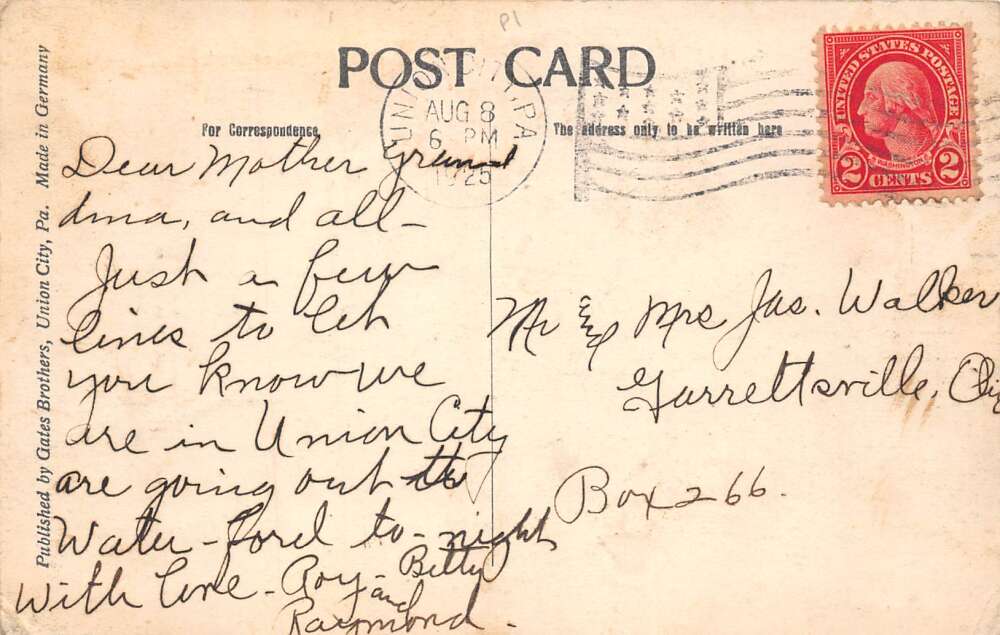 P1
POST CARD
UNION CITY, PA
AUG 8
6 PM
1925
UNITED STATES POSTAGE
WASHINGTON
2 CENTS 2
For Correspondence
The address only to be written here
Published by Gates Brothers, Union City, Pa. Made in Germany
Dear Mother grand
dma, and all-
Just a few
lines to let
you know we
are in Union City
are going out to
Water-ford to-night
With love - Roy - Betty
and
Raymond.
Mr and Mrs Jas. Walker
Garrettsville,
Box 266.